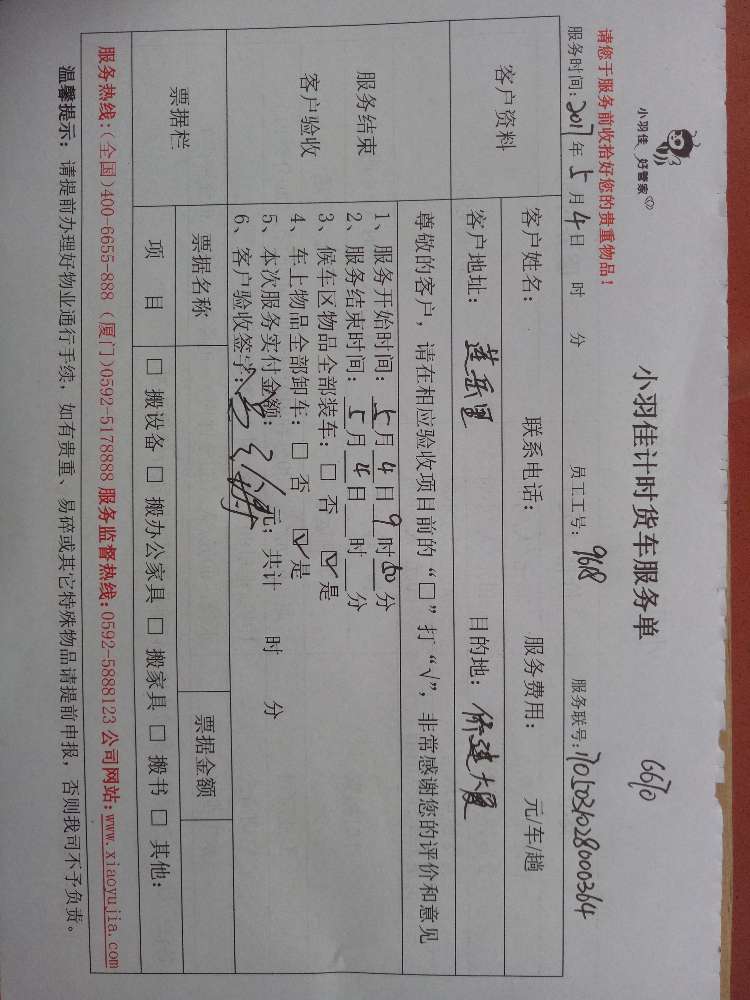 小羽佳 好管家
小羽佳计时货车服务单
6670
请您于服务前收拾好您的贵重物品！
服务时间：2017年5月4日 时 分 员工工号：9618 服务联号：1705031028000364
客户资料
客户姓名： 联系电话： 服务费用： 元/车/趟
客户地址：莲岳里 目的地：侨建大厦
服务结束
客户验收
尊敬的客户，请在相应验收项目前的“□”打“√”，非常感谢您的评价和意见
1、服务开始时间：5月4日9时60分
2、服务结束时间：5月4日 时 分
3、候车区物品全部装车：□否 ☑是
4、车上物品全部卸车：□否 ☑是
5、本次服务实付金额： 元；共计 时 分
6、客户验收签字：
票据栏
票据名称 票据金额
项 目 □搬设备 □搬办公家具 □搬家具 □搬书 □其他：
服务热线：(全国)400-6655-888 (厦门)0592-5178888 服务监督热线：0592-5888123 公司网站：www.xiaoyujia.com
温馨提示：请提前办理好物业通行手续，如有贵重、易碎或其它特殊物品请提前申报，否则我司不予负责。